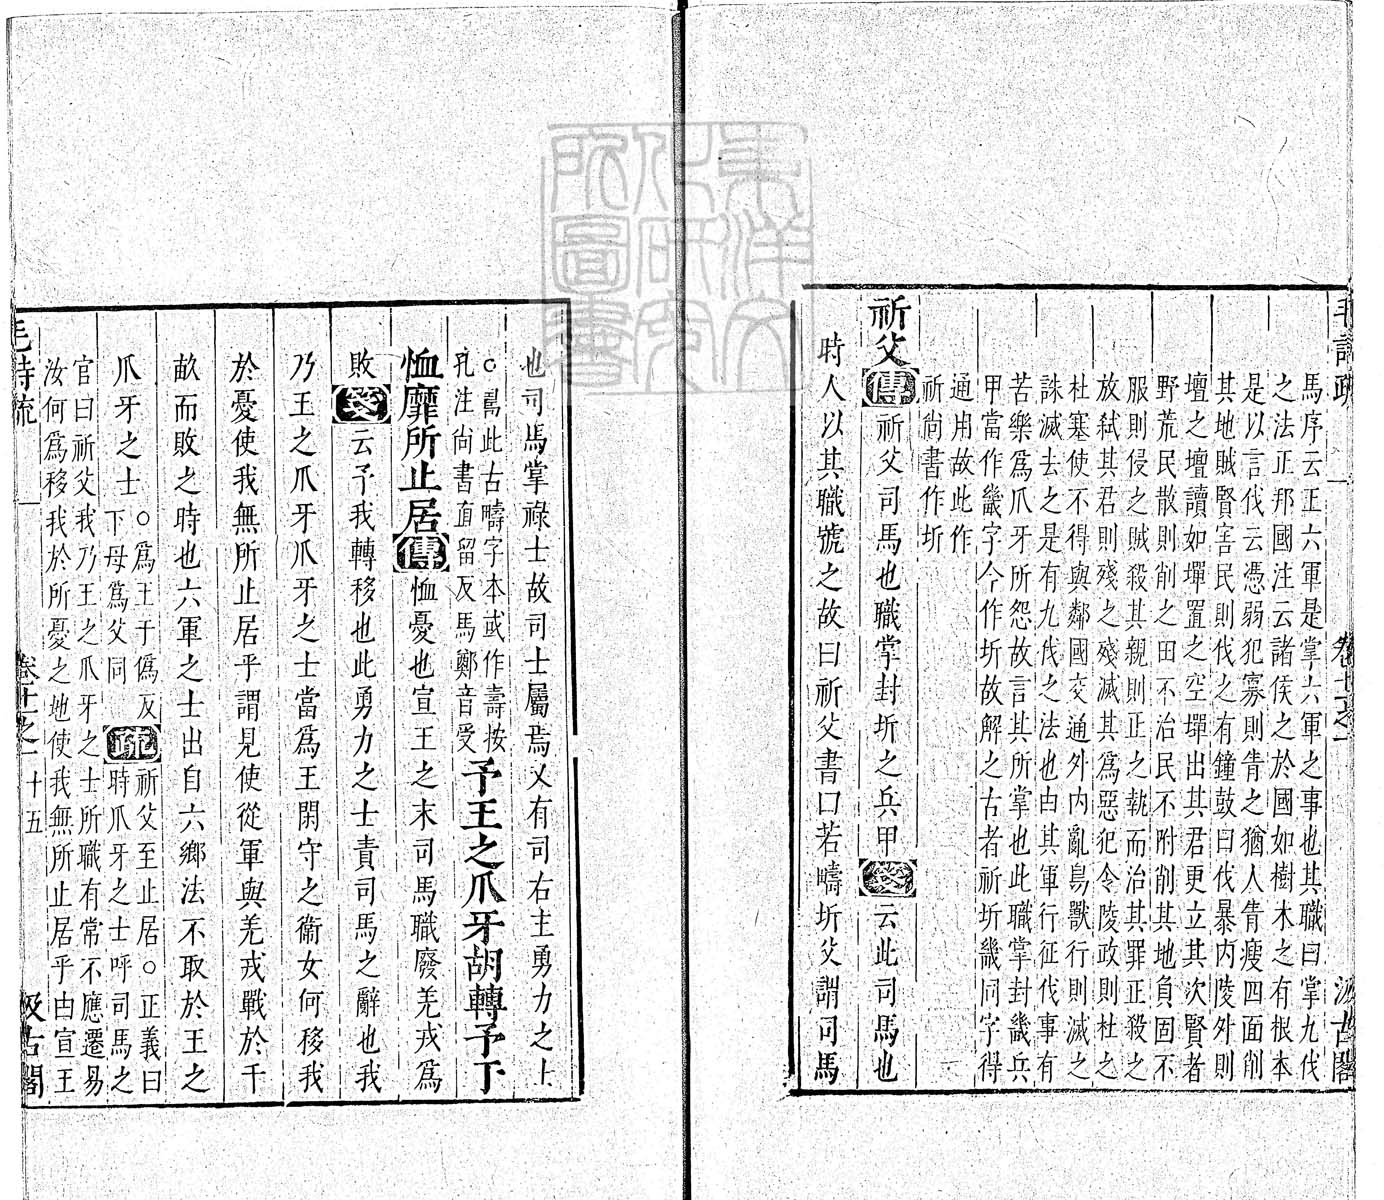 毛詩疏　卷十一之一　汲古閣
馬序云王六軍是掌六軍之事也其職曰掌九伐
之法正邦國注云諸侯之於國如樹木之有根本
是以言伐云憑弱犯寡則眚之猶人眚瘦四面削
其地賊賢害民則伐之有鐘鼓曰伐暴内陵外則
壇之壇讀如墠置之空墠出其君更立其次賢者
野荒民散則削之田不治民不附削其地負固不
服則侵之賊殺其親則正之執而治其罪正殺之
放弑其君則殘之殘滅其爲惡犯令陵政則杜之
杜塞使不得與鄰國交通外内亂鳥獸行則滅之
誅滅去之是有九伐之法也由其軍行征伐事有
苦樂爲爪牙所怨故言其所掌也此職掌封畿兵
甲當作畿字今作圻故解之古者祈圻畿同字得
通用故此作
祈尚書作圻
祈父傳祈父司馬也職掌封圻之兵甲箋云此司馬也
時人以其職號之故曰祈父書曰若疇圻父謂司馬
也司馬掌祿士故司士屬焉又有司右主勇力之士
○鬲此古疇字本或作壽按
孔注尚書直留反馬鄭音受
予王之爪牙胡轉予于
恤靡所止居傳恤憂也宣王之末司馬職廢羌戎爲
敗箋云予我轉移也此勇力之士責司馬之辭也我
乃王之爪牙爪牙之士當爲王閑守之衞女何移我
於憂使我無所止居乎謂見使從軍與羌戎戰於千
畝而敗之時也六軍之士出自六鄉法不取於王之
爪牙之士
○爲王于僞反
下母爲父同
疏
祈父至止居○正義曰
時爪牙之士呼司馬之
官曰祈父我乃王之爪牙之士所職有常不應遷易
汝何爲移我於所憂之地使我無所止居乎由宣王
毛詩疏　卷十一之一　十五　汲古閣
東洋文化研究所圖書